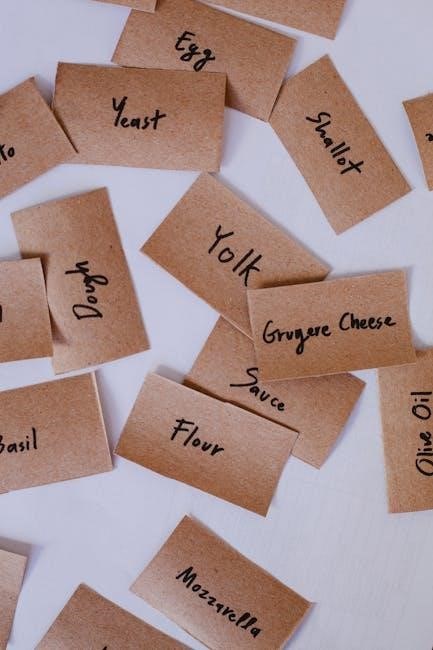 Egg
Yeast
Shallot
to
Yolk
Dough
Gruyere Cheese
Sauce
Olive Oil
Flour
Basil
Mozzarella